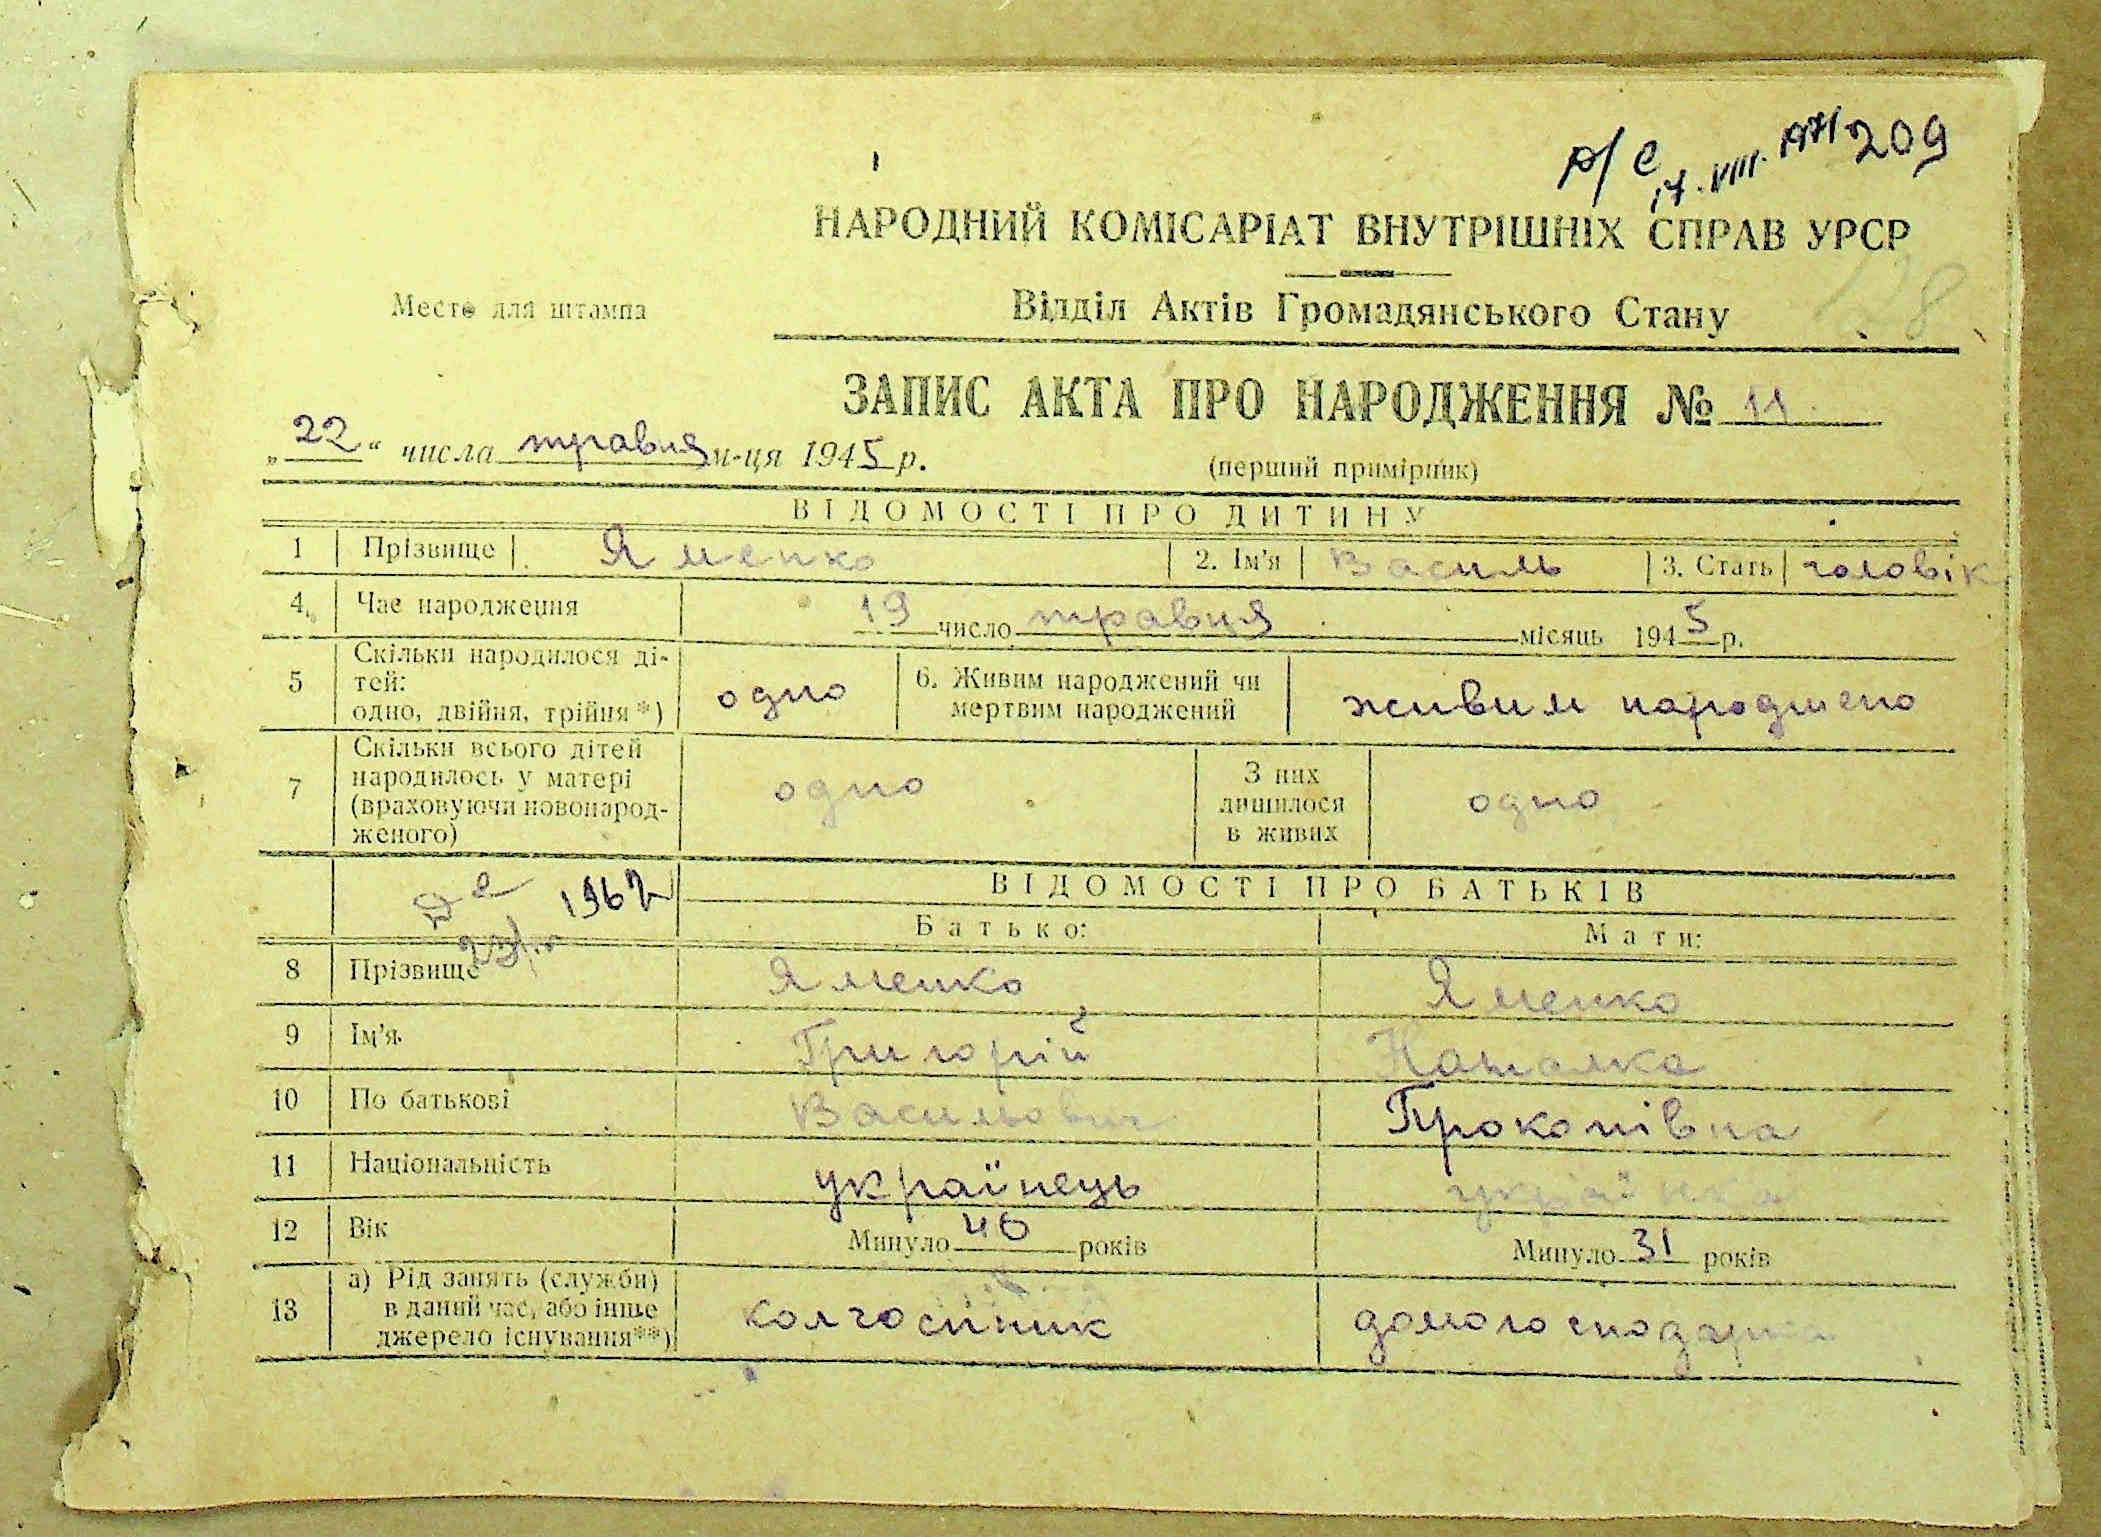 209
17.VIII.1971
НАРОДНИЙ КОМІСАРІАТ ВНУТРІШНІХ СПРАВ УРСР
Место для штампа
Відділ Актів Громадянського Стану
ЗАПИС АКТА ПРО НАРОДЖЕННЯ № 11
„22“ числа травня м-ця 1945 р.
(перший примірник)
ВІДОМОСТІ ПРО ДИТИНУ
1 Прізвище Яменко 2. Ім'я Василь 3. Стать чоловік
4. Час народження 19 число травня місяць 1945 р.
5 Скільки народилося ді-
тей:
одно, двійня, трійня*) одно 6. Живим народжений чи
мертвим народжений живим народжено
7 Скільки всього дітей
народилось у матері
(враховуючи новонарод-
женого) одно З них
лишилося
в живих одно
1967
ВІДОМОСТІ ПРО БАТЬКІВ
Батько: Мати:
8 Прізвище Яменко Яменко
9 Ім'я Григорій Наталка
10 По батькові Васильович Прокопівна
11 Національність українець українка
12 Вік Минуло 46 років Минуло 31 років
13 а) Рід занять (служби)
в даний час, або інше
джерело існування**) колгоспник домогосподарка